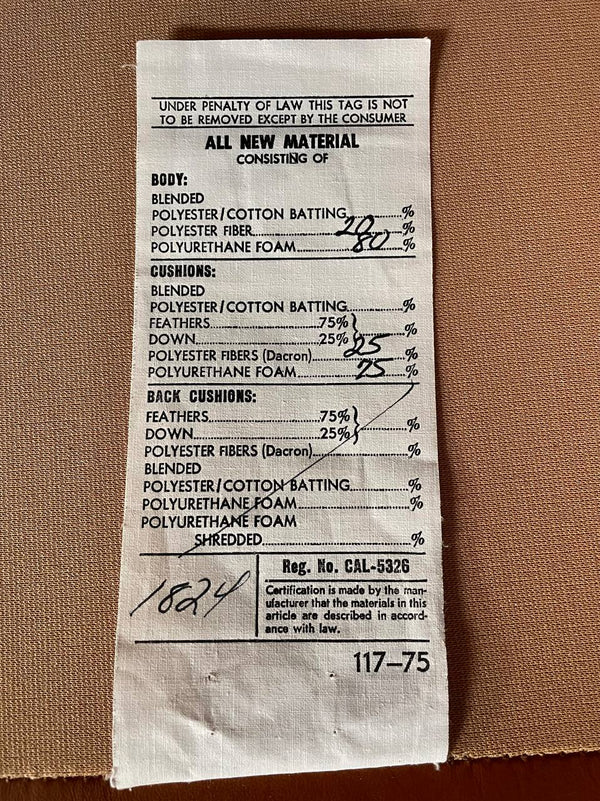 UNDER PENALTY OF LAW THIS TAG IS NOT
TO BE REMOVED EXCEPT BY THE CONSUMER
ALL NEW MATERIAL
CONSISTING OF
BODY:
BLENDED
POLYESTER/COTTON BATTING..........%
POLYESTER FIBER..........20..........%
POLYURETHANE FOAM..........80..........%
CUSHIONS:
BLENDED
POLYESTER/COTTON BATTING..........%
FEATHERS..........75%
DOWN..........25% }..........%
POLYESTER FIBERS (Dacron)..........25..........%
POLYURETHANE FOAM..........75..........%
BACK CUSHIONS:
FEATHERS..........75%
DOWN..........25% }..........%
POLYESTER FIBERS (Dacron)..........%
BLENDED
POLYESTER/COTTON BATTING..........%
POLYURETHANE FOAM..........%
POLYURETHANE FOAM
SHREDDED..........%
1824
Reg. No. CAL-5326
Certification is made by the man-
ufacturer that the materials in this
article are described in accord-
ance with law.
117-75